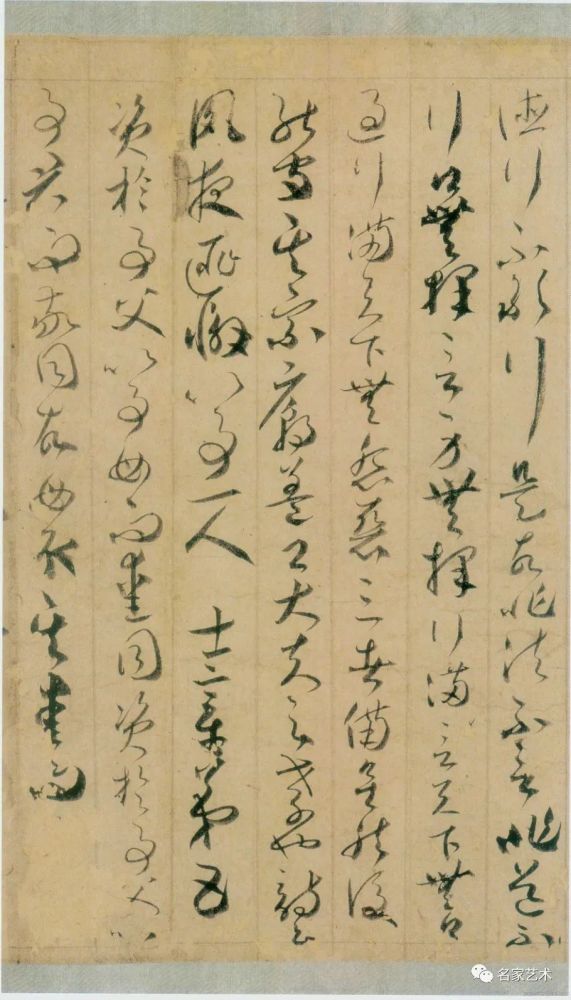 德行不敢行是故非法不言非道不
行口無擇言身無擇行滿言天下無口
過行滿天下無怨惡三者備矣然後
能守其宗廟蓋卿大夫之孝也詩云
夙夜匪懈以事一人 士章第五
資於事父以事母而愛同資於事父以
事君而敬同故母取其愛而
名家艺术